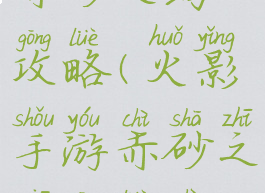 gōng lüè huǒ yǐng
攻略(火影
shǒu yóu chì shā zhī
手游赤砂之